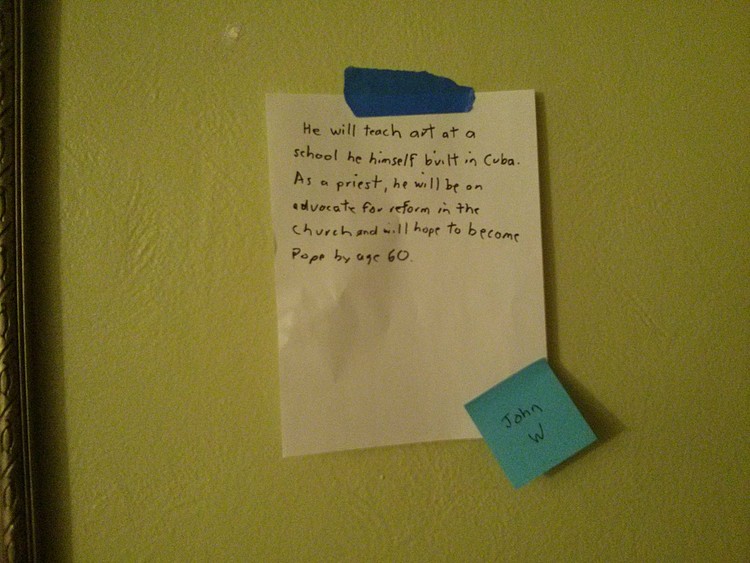 He will teach art at a
school he himself built in Cuba.
As a priest, he will be an
advocate for reform in the
Church and will hope to become
Pope by age 60.
John
W